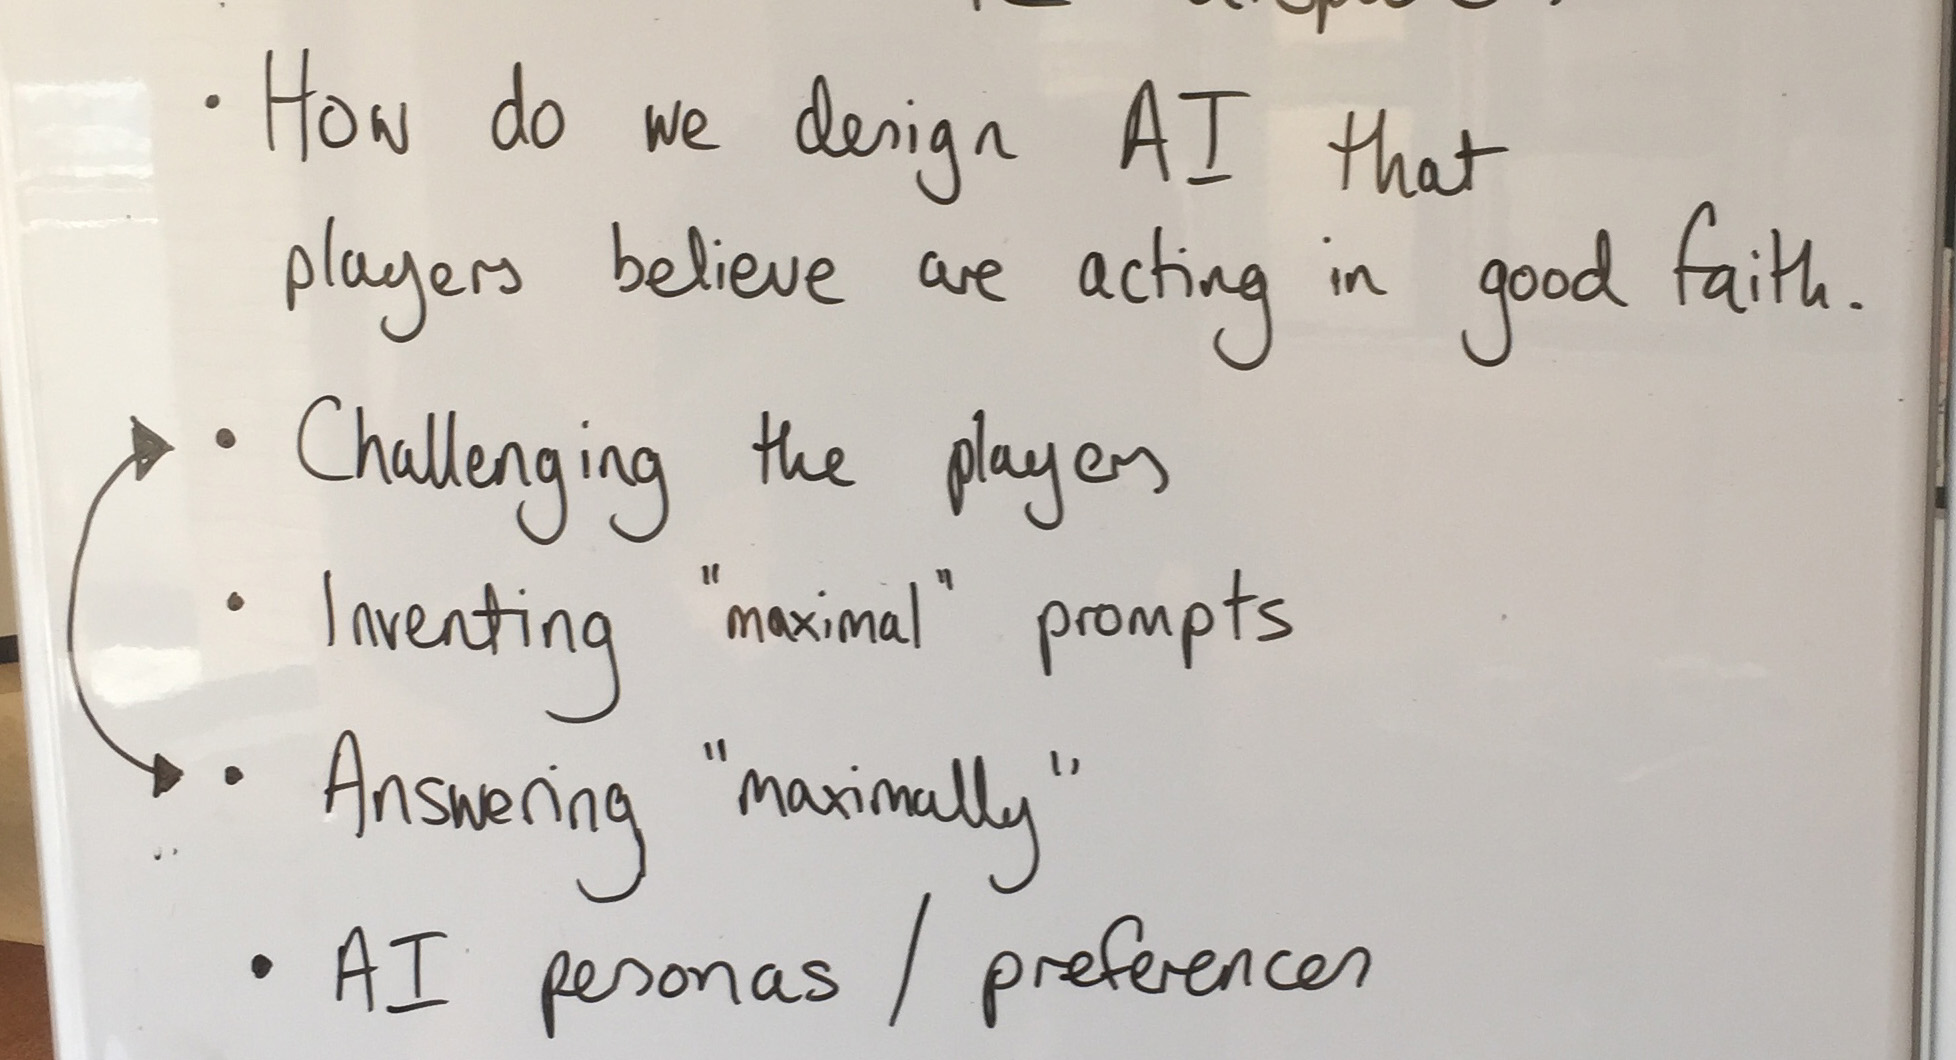 • How do we design AI that
players believe are acting in good faith.
• Challenging the players
• Inventing "maximal" prompts
• Answering "maximally"
• AI personas / preferences